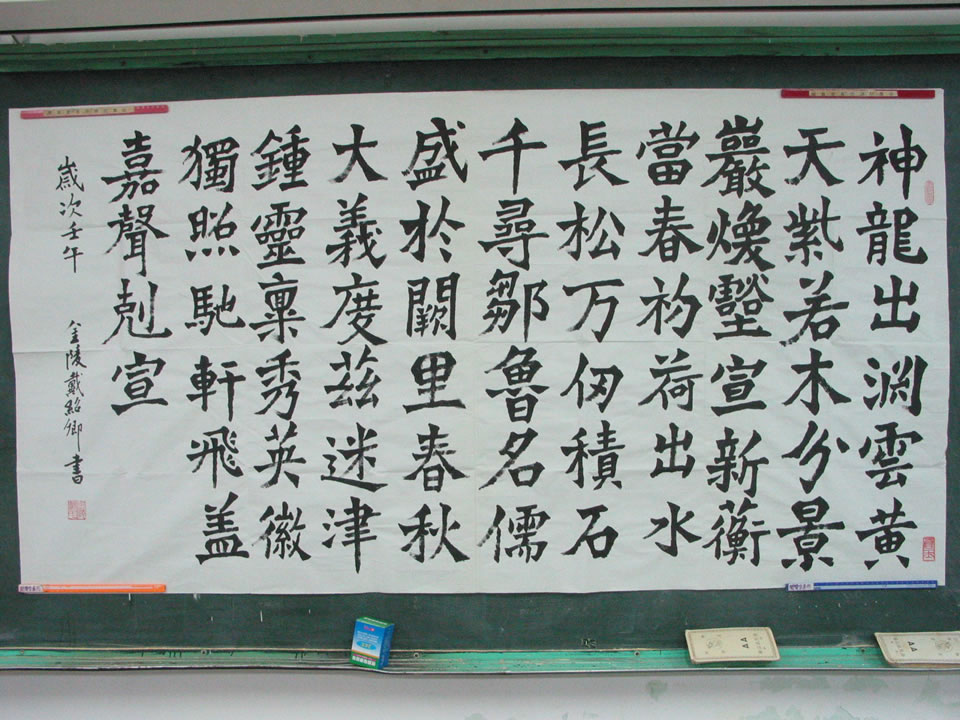 神龍出淵雲黃
天紫若木分景
巖煥壑宣新蘅
當春初荷出水
長松万仞積石
千尋鄒魯名儒
盛於闕里春秋
大義度茲迷津
鍾靈稟秀英徽
獨照馳軒飛盖
嘉聲剋宣
歲次壬午
金陵戴紹卿書